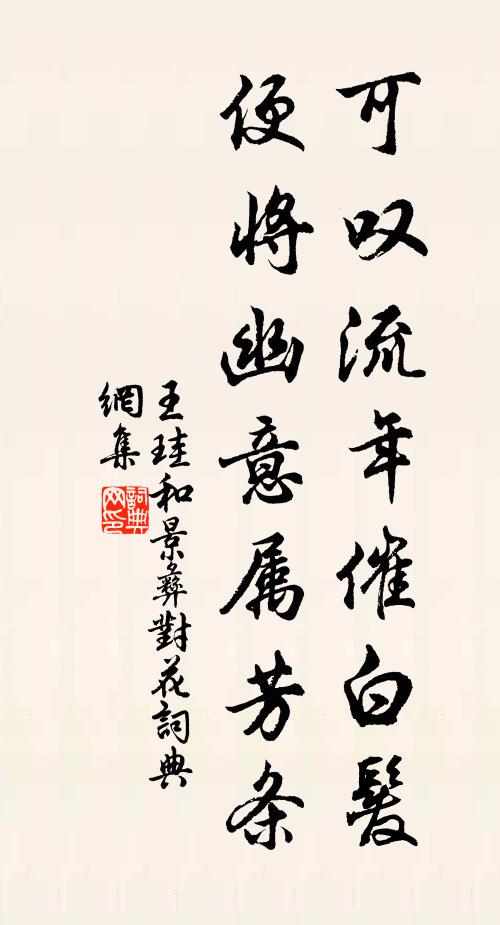 可叹流年催白髮
便将幽意属芳条
王珪和景彝對花詞典
網集
詞典
网印